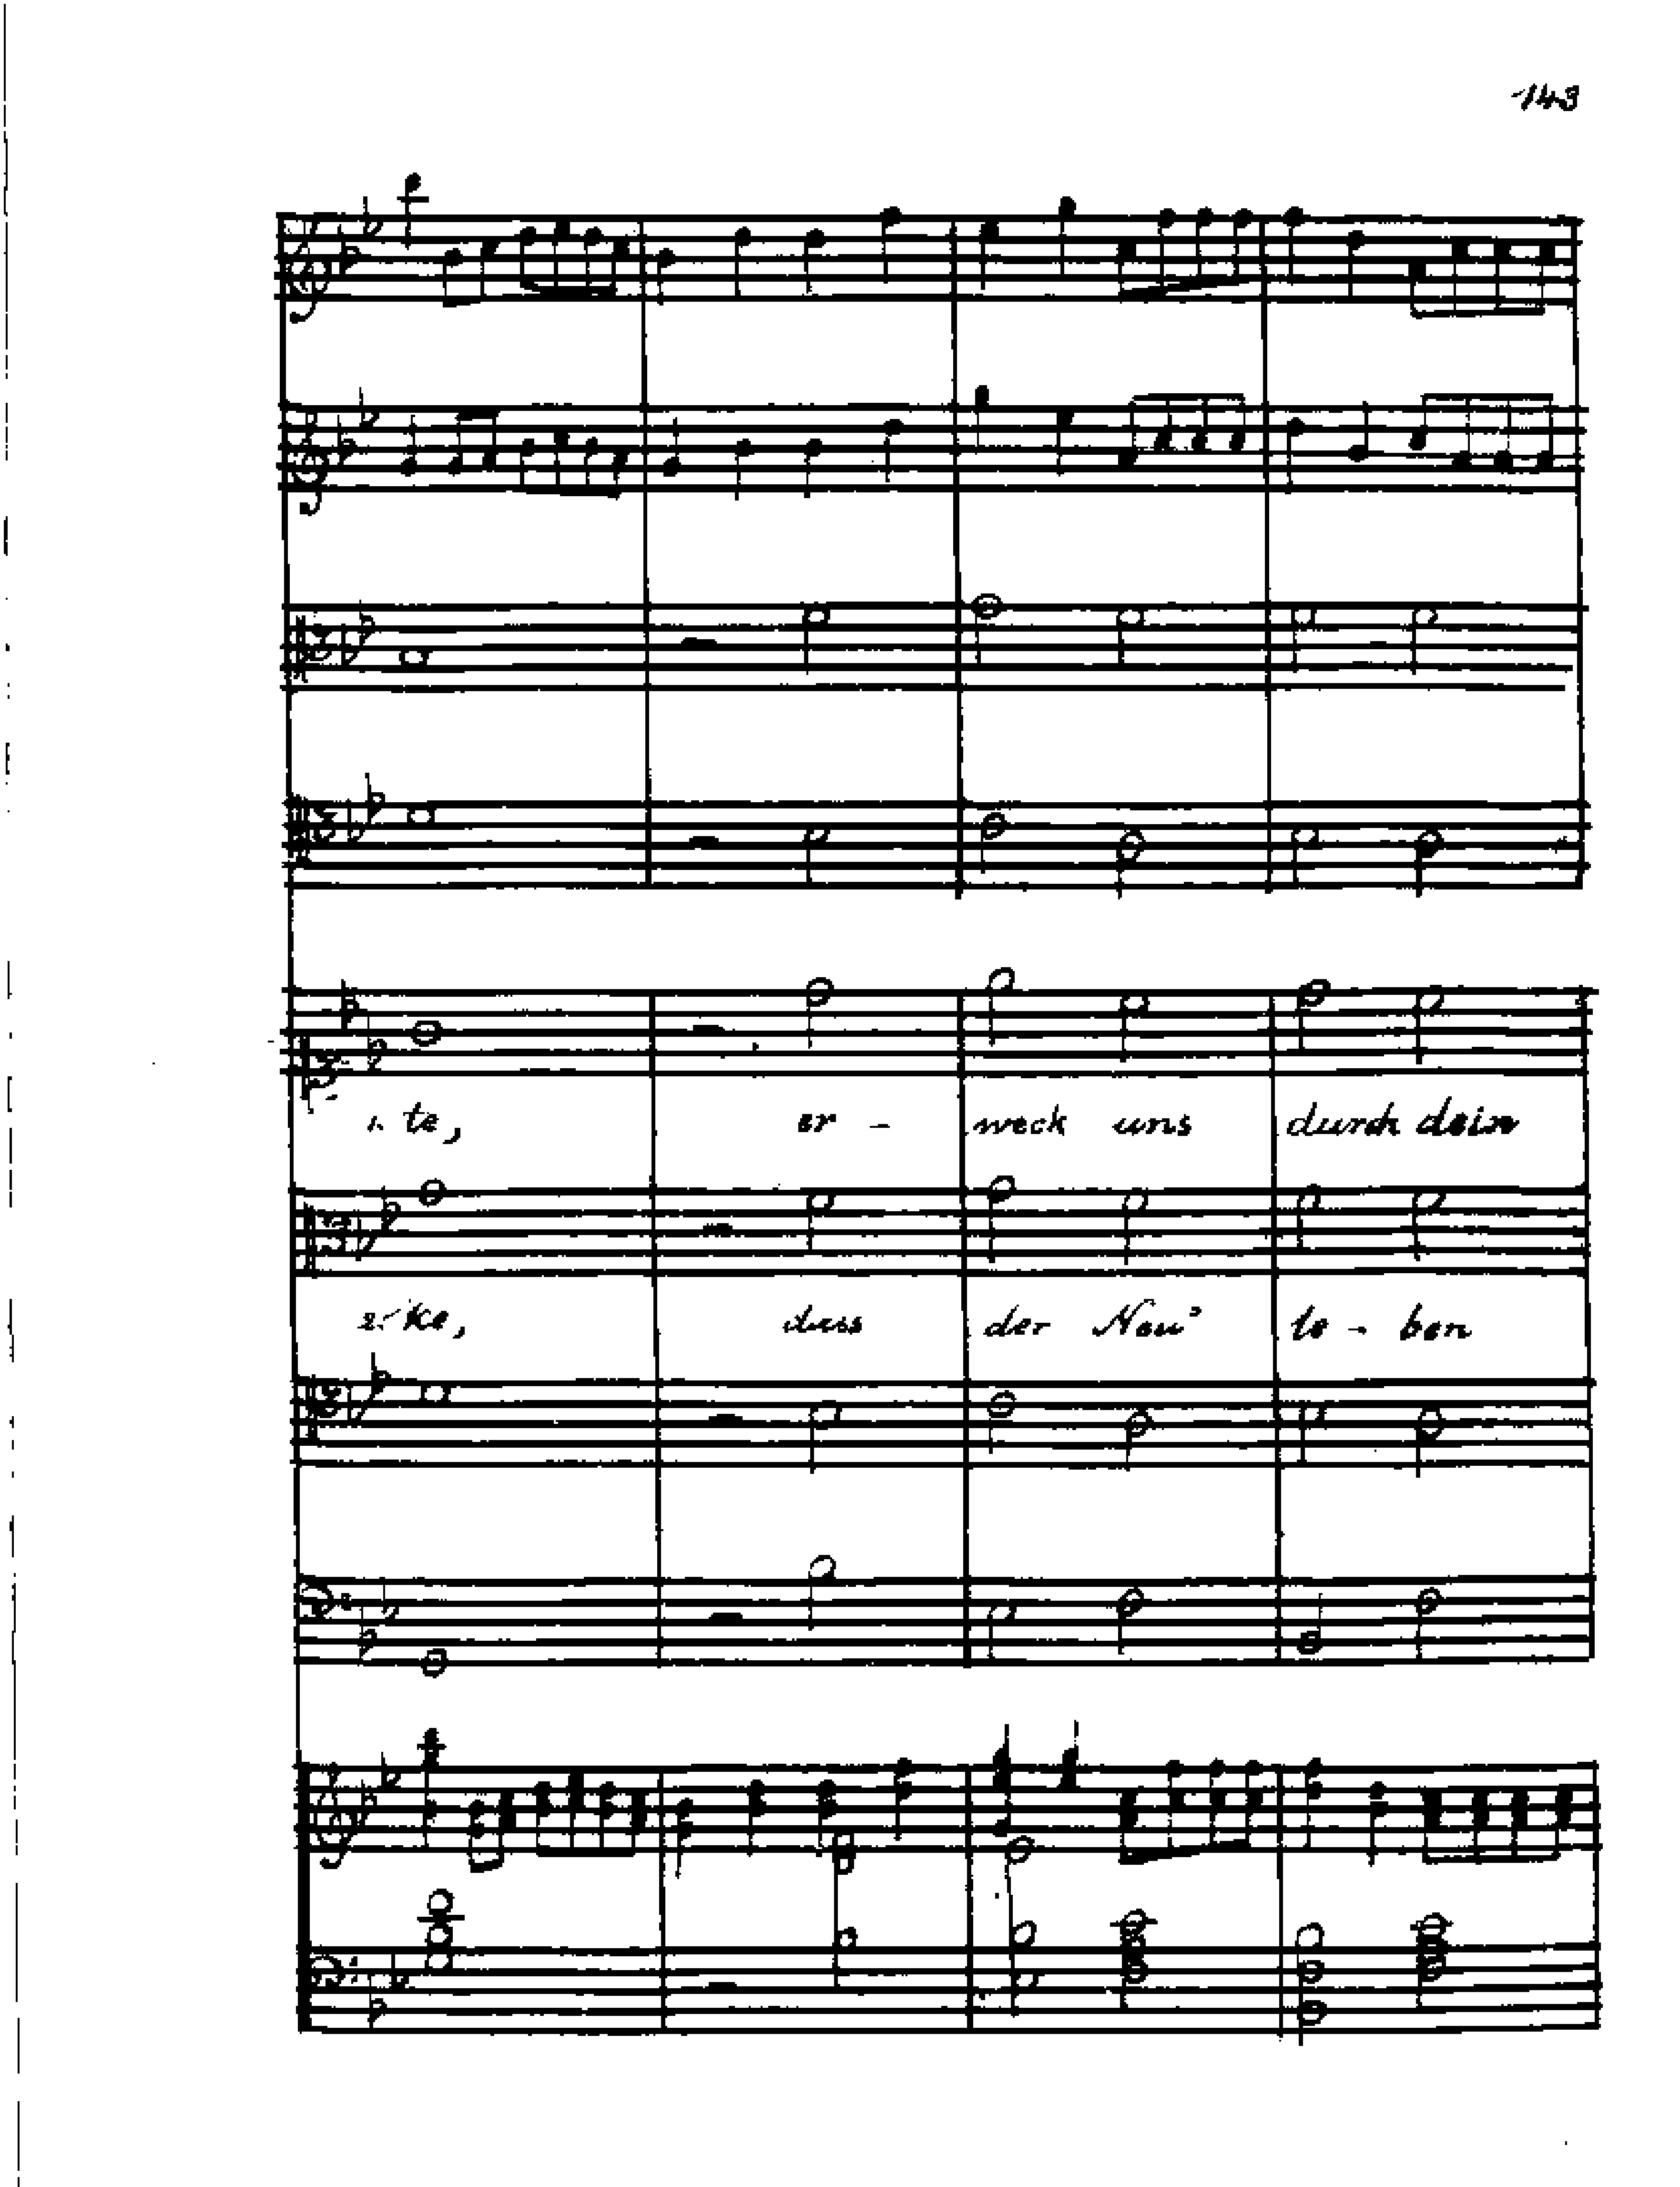 143
1. te, er - weck uns durch dein
2. ke, dass der Neu' le - ben